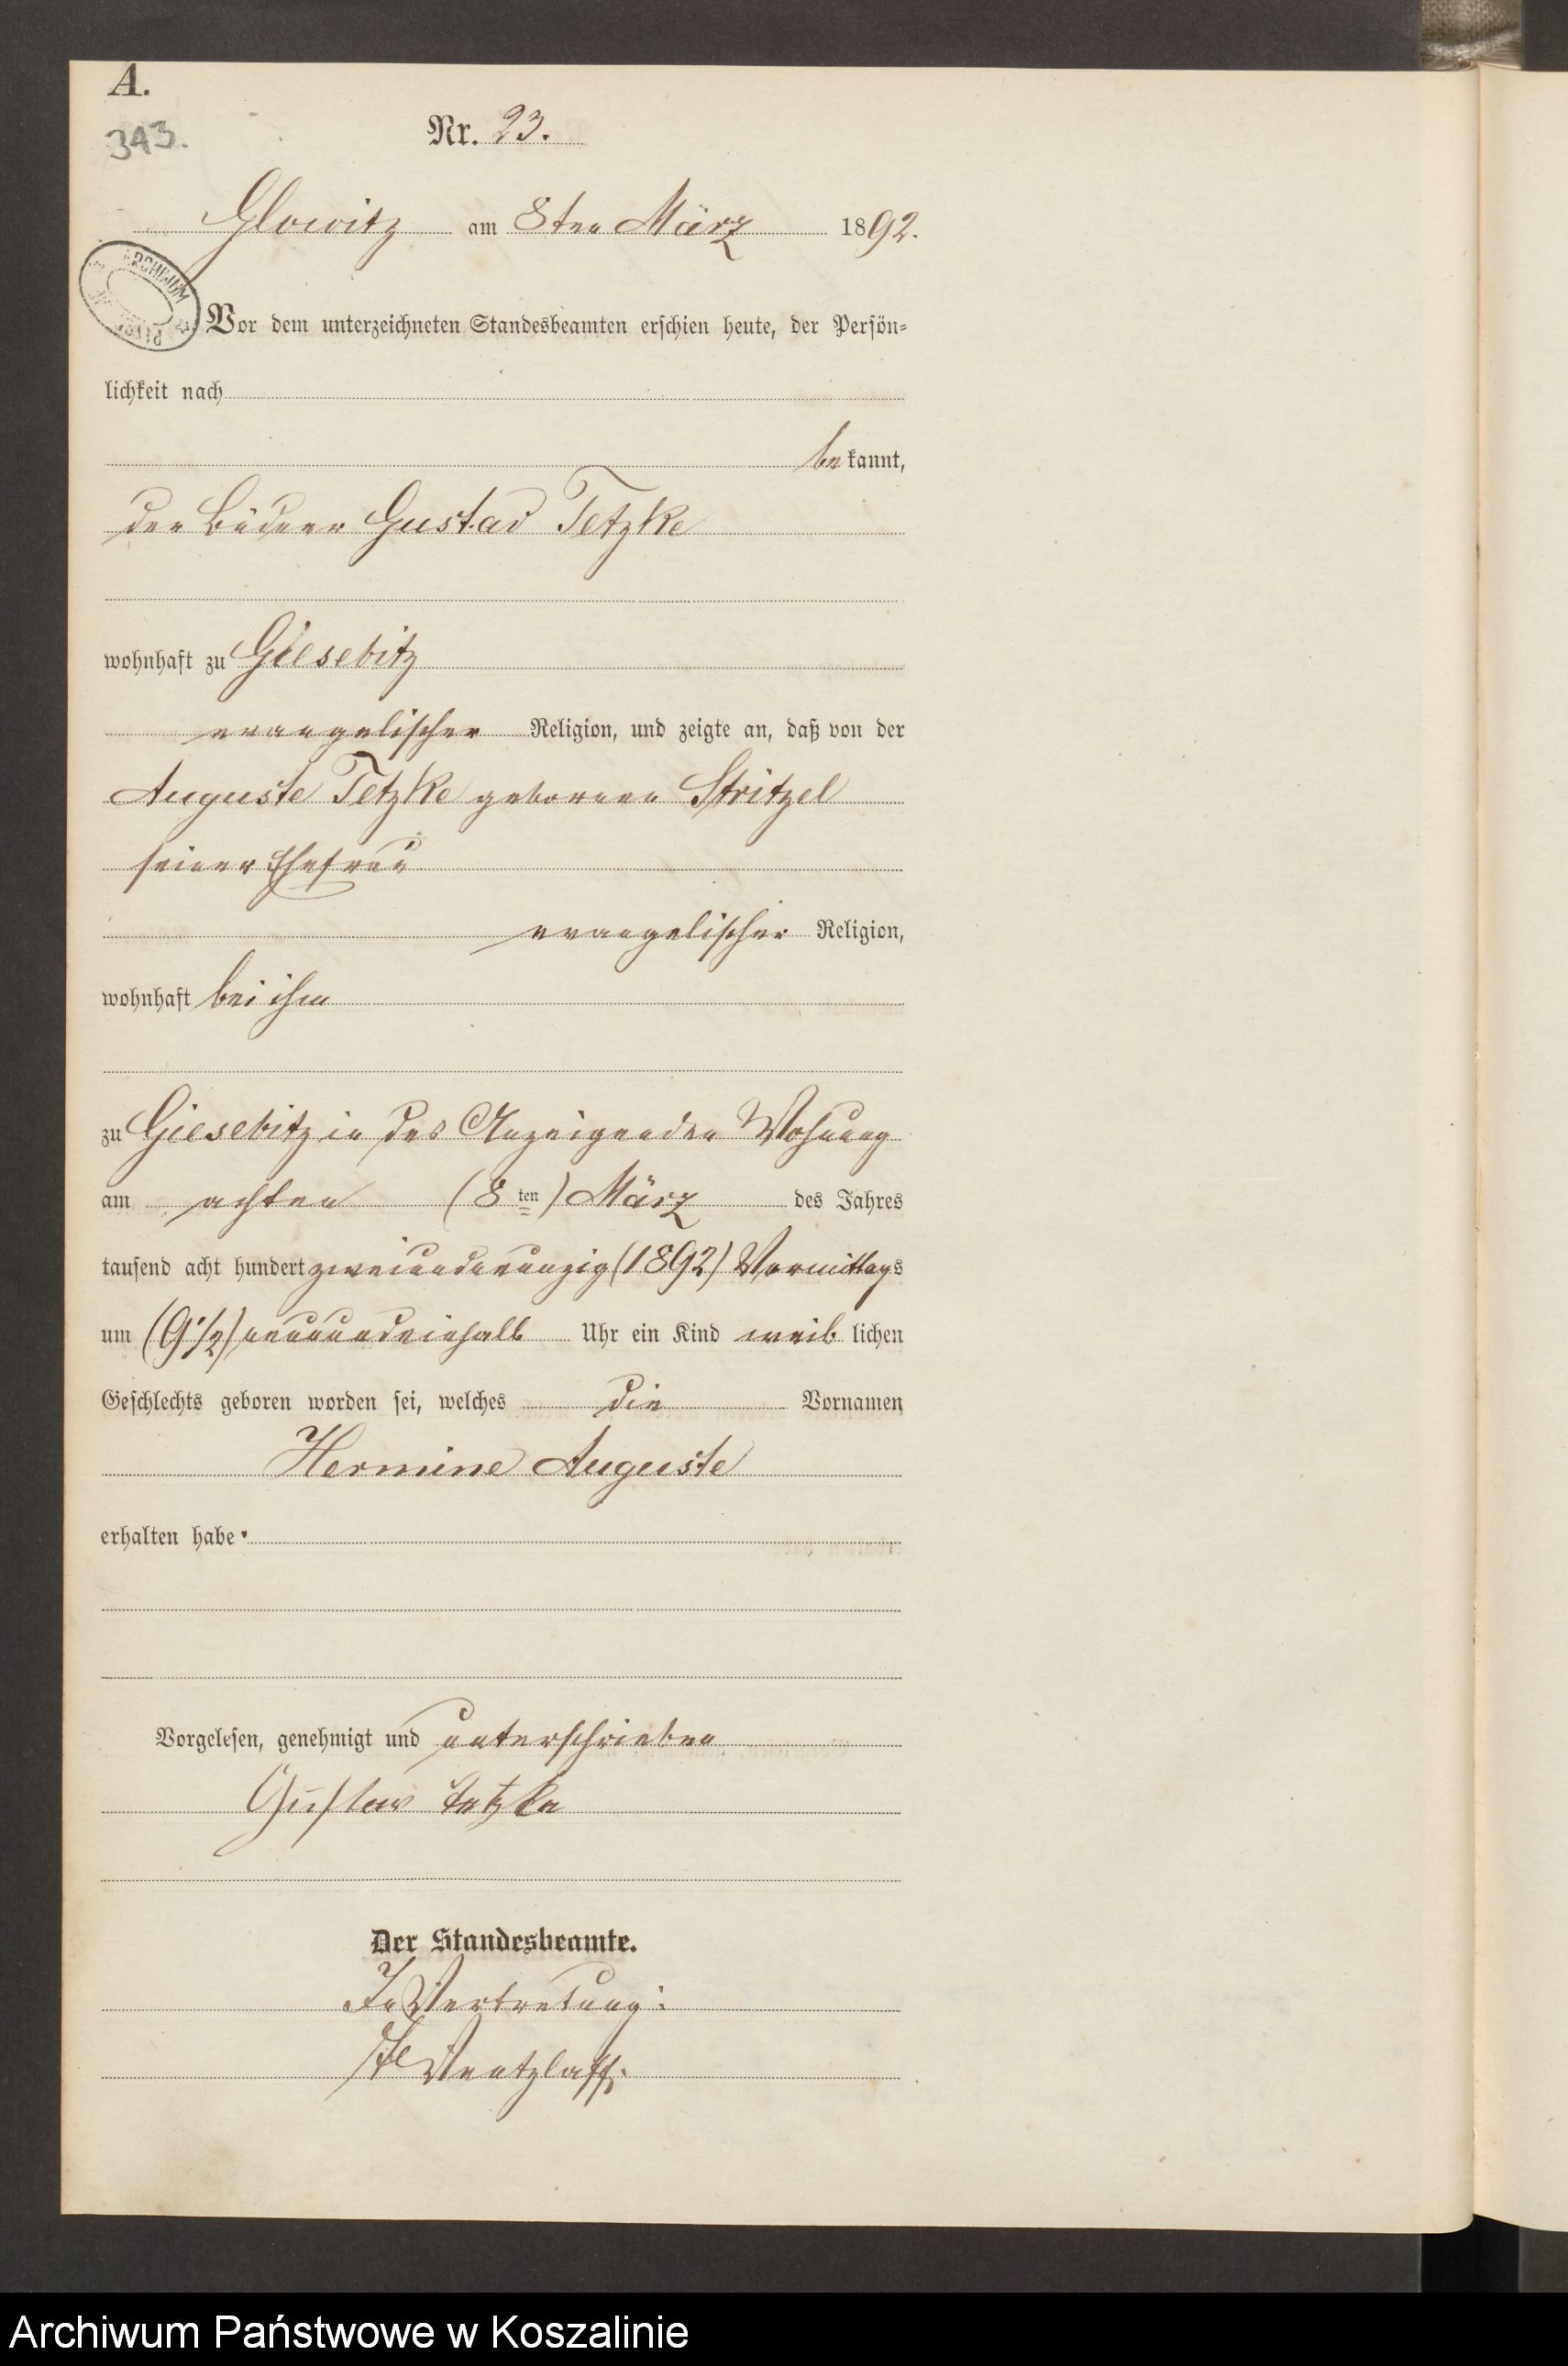 A.
343.
Nr. 23.
Glowitz am 8ten März 1892.
ARCHIWUM
Vor dem unterzeichneten Standesbeamten erschien heute, der Persön=
lichkeit nach
bekannt,
der Büdner Gustav Tetzke
wohnhaft zu Giesebitz
evangelischer Religion, und zeigte an, daß von der
Auguste Tetzke geborenen Stritzel
seiner Ehefrau
evangelischer Religion,
wohnhaft bei ihm
zu Giesebitz in des Anzeigenden Wohnung
am achten (8 ten) März des Jahres
tausend acht hundert zweiundneunzig (1892) Vormittags
um (9 1/2) neunundeinhalb Uhr ein Kind weiblichen
Geschlechts geboren worden sei, welches die Vornamen
Hermine Auguste
erhalten habe.
Vorgelesen, genehmigt und unterschrieben
Gustav Tetzke
Der Standesbeamte.
In Vertretung:
Wentzlaff.
Archiwum Państwowe w Koszalinie